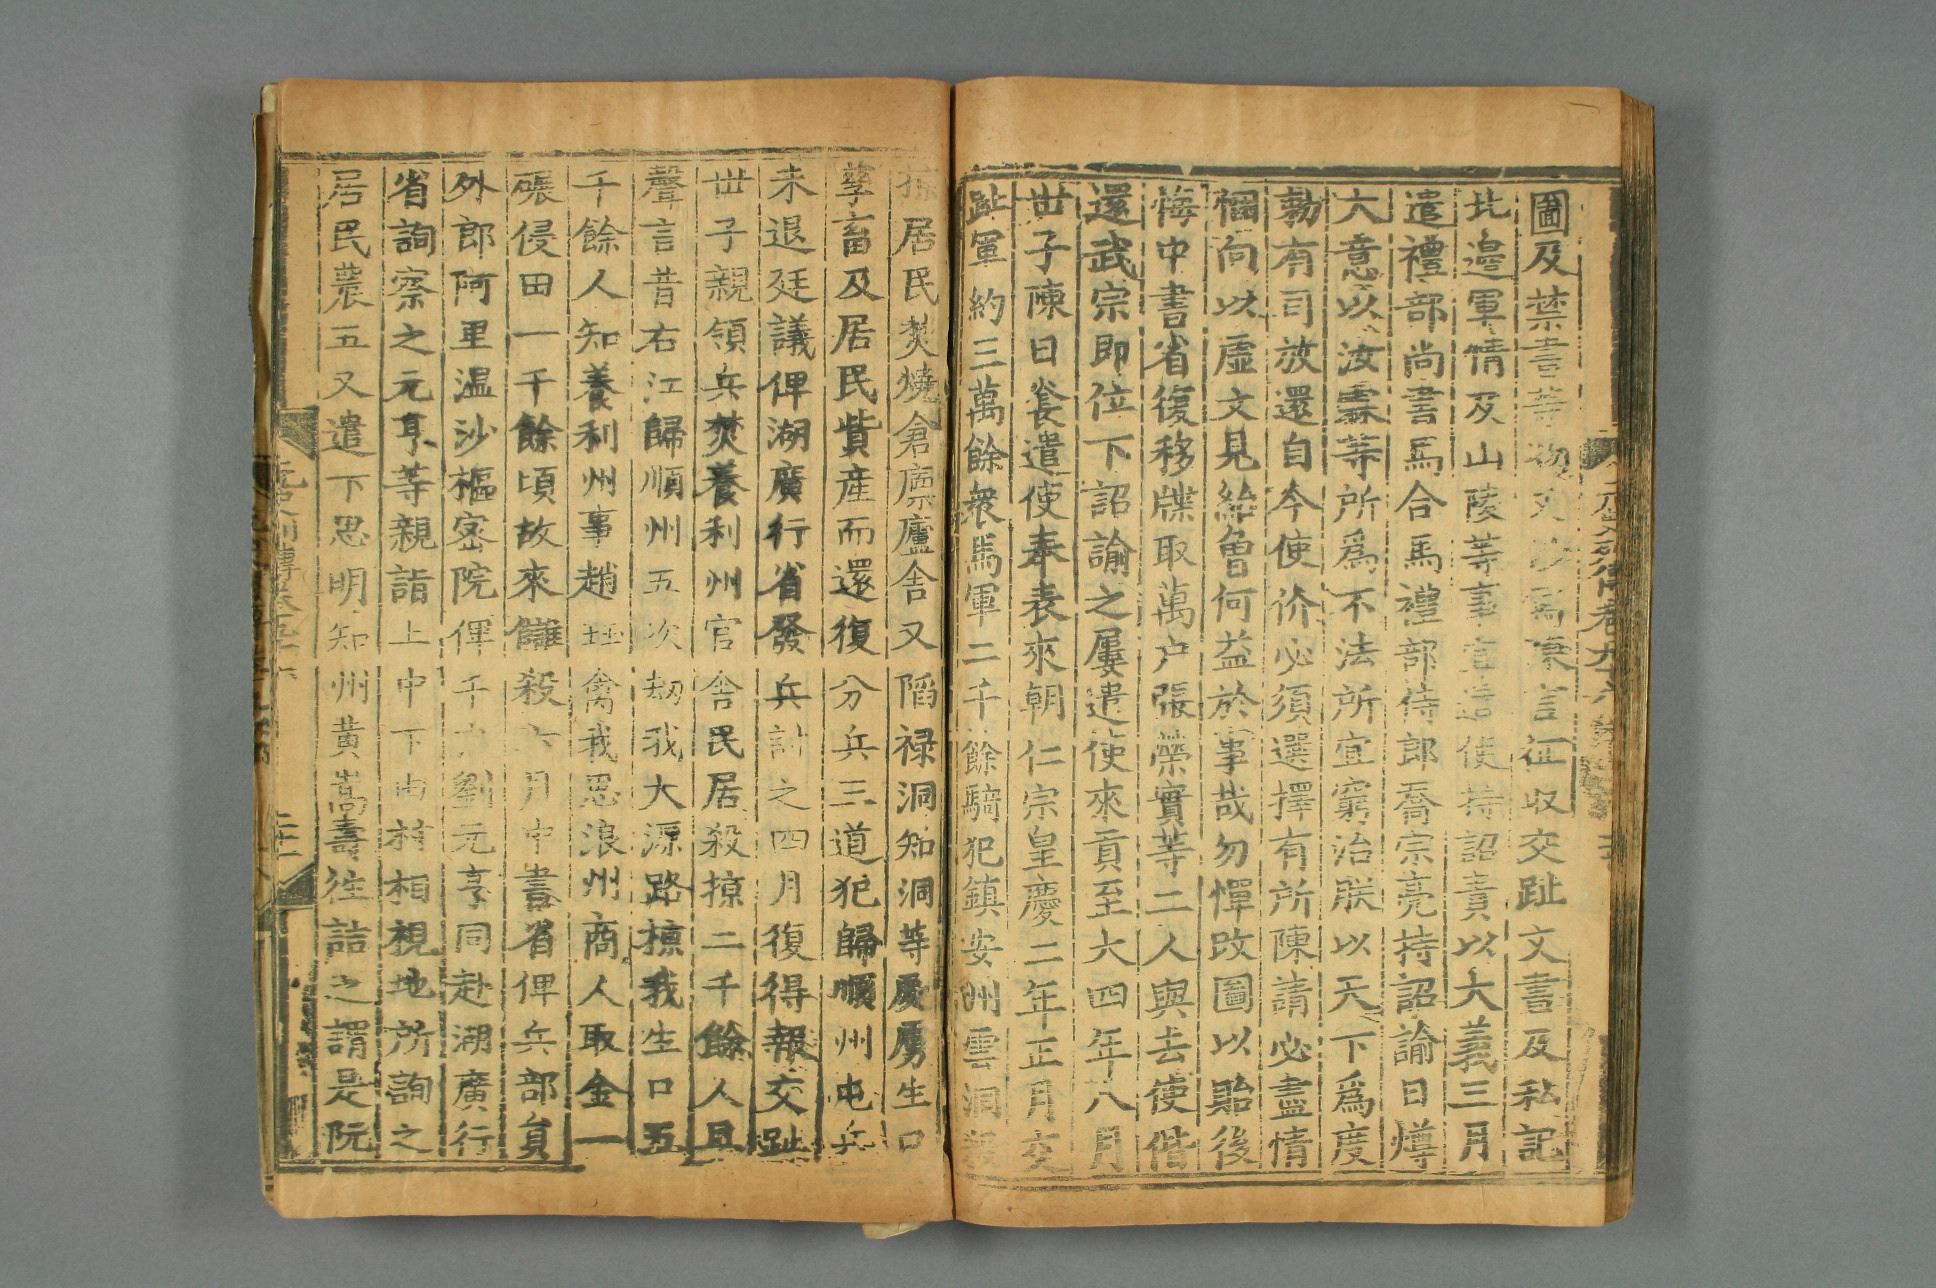 圖及禁書等物又抄寫陳言征収交趾文書及私記
北邊軍情及山陵等事宜遣使持詔責以大義三月
遣禮部尚書馬合馬禮部侍郎喬宗亮持詔諭日燇
大意以汝霖等所爲不法所宜窮治朕以天下爲度
勑有司放還自今使价必須選擇有所陳請必盡情
悃向以虛文見紿曾何益於事哉勿憚攺圖以貽後
悔中書省復移牒取萬户張榮實等二人與去使偕
還武宗即位下詔諭之屢遣使來貢至大四年八月
世子陳日㷃遣使奉表來朝仁宗皇慶二年正月交
趾軍約三萬餘衆馬軍二千餘騎犯鎮安州雲洞殺
掠居民焚燒倉廪廬舍又陷禄洞知洞等處虜生口
孳畜及居民貲産而還復分兵三道犯歸順州屯兵
未退廷議俾湖廣行省發兵討之四月復得報交趾
世子親領兵焚養利州官舍民居殺掠二千餘人且
聲言昔右江歸順州五次刼我大源路掠我生口五
千餘人知養利州事趙珏禽我思浪州商人取金一
碾侵田一千餘頃故來讎殺六月中書省俾兵部員
外郎阿里温沙樞密院俾千户劉元亨同赴湖廣行
省詢察之元亨等親詣上中下由村相視地所詢之
居民農五又遣下思明知州黄嵩壽徃詰之謂是阮